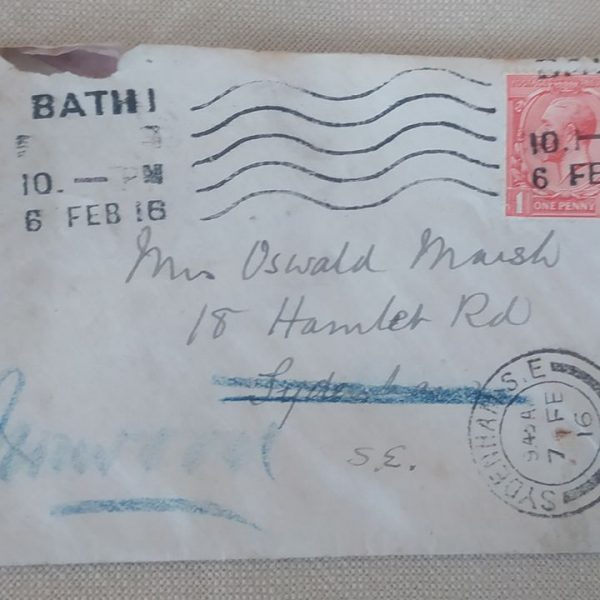 BATH 1
10. — PM
6 FEB 16
10.1—
6 FE
1 ONE PENNY
Mrs Oswald Marsh
18 Hamlet Rd
Sydenham
S.E.
SYDENHAM S.E
9.45 A
7 FE
16